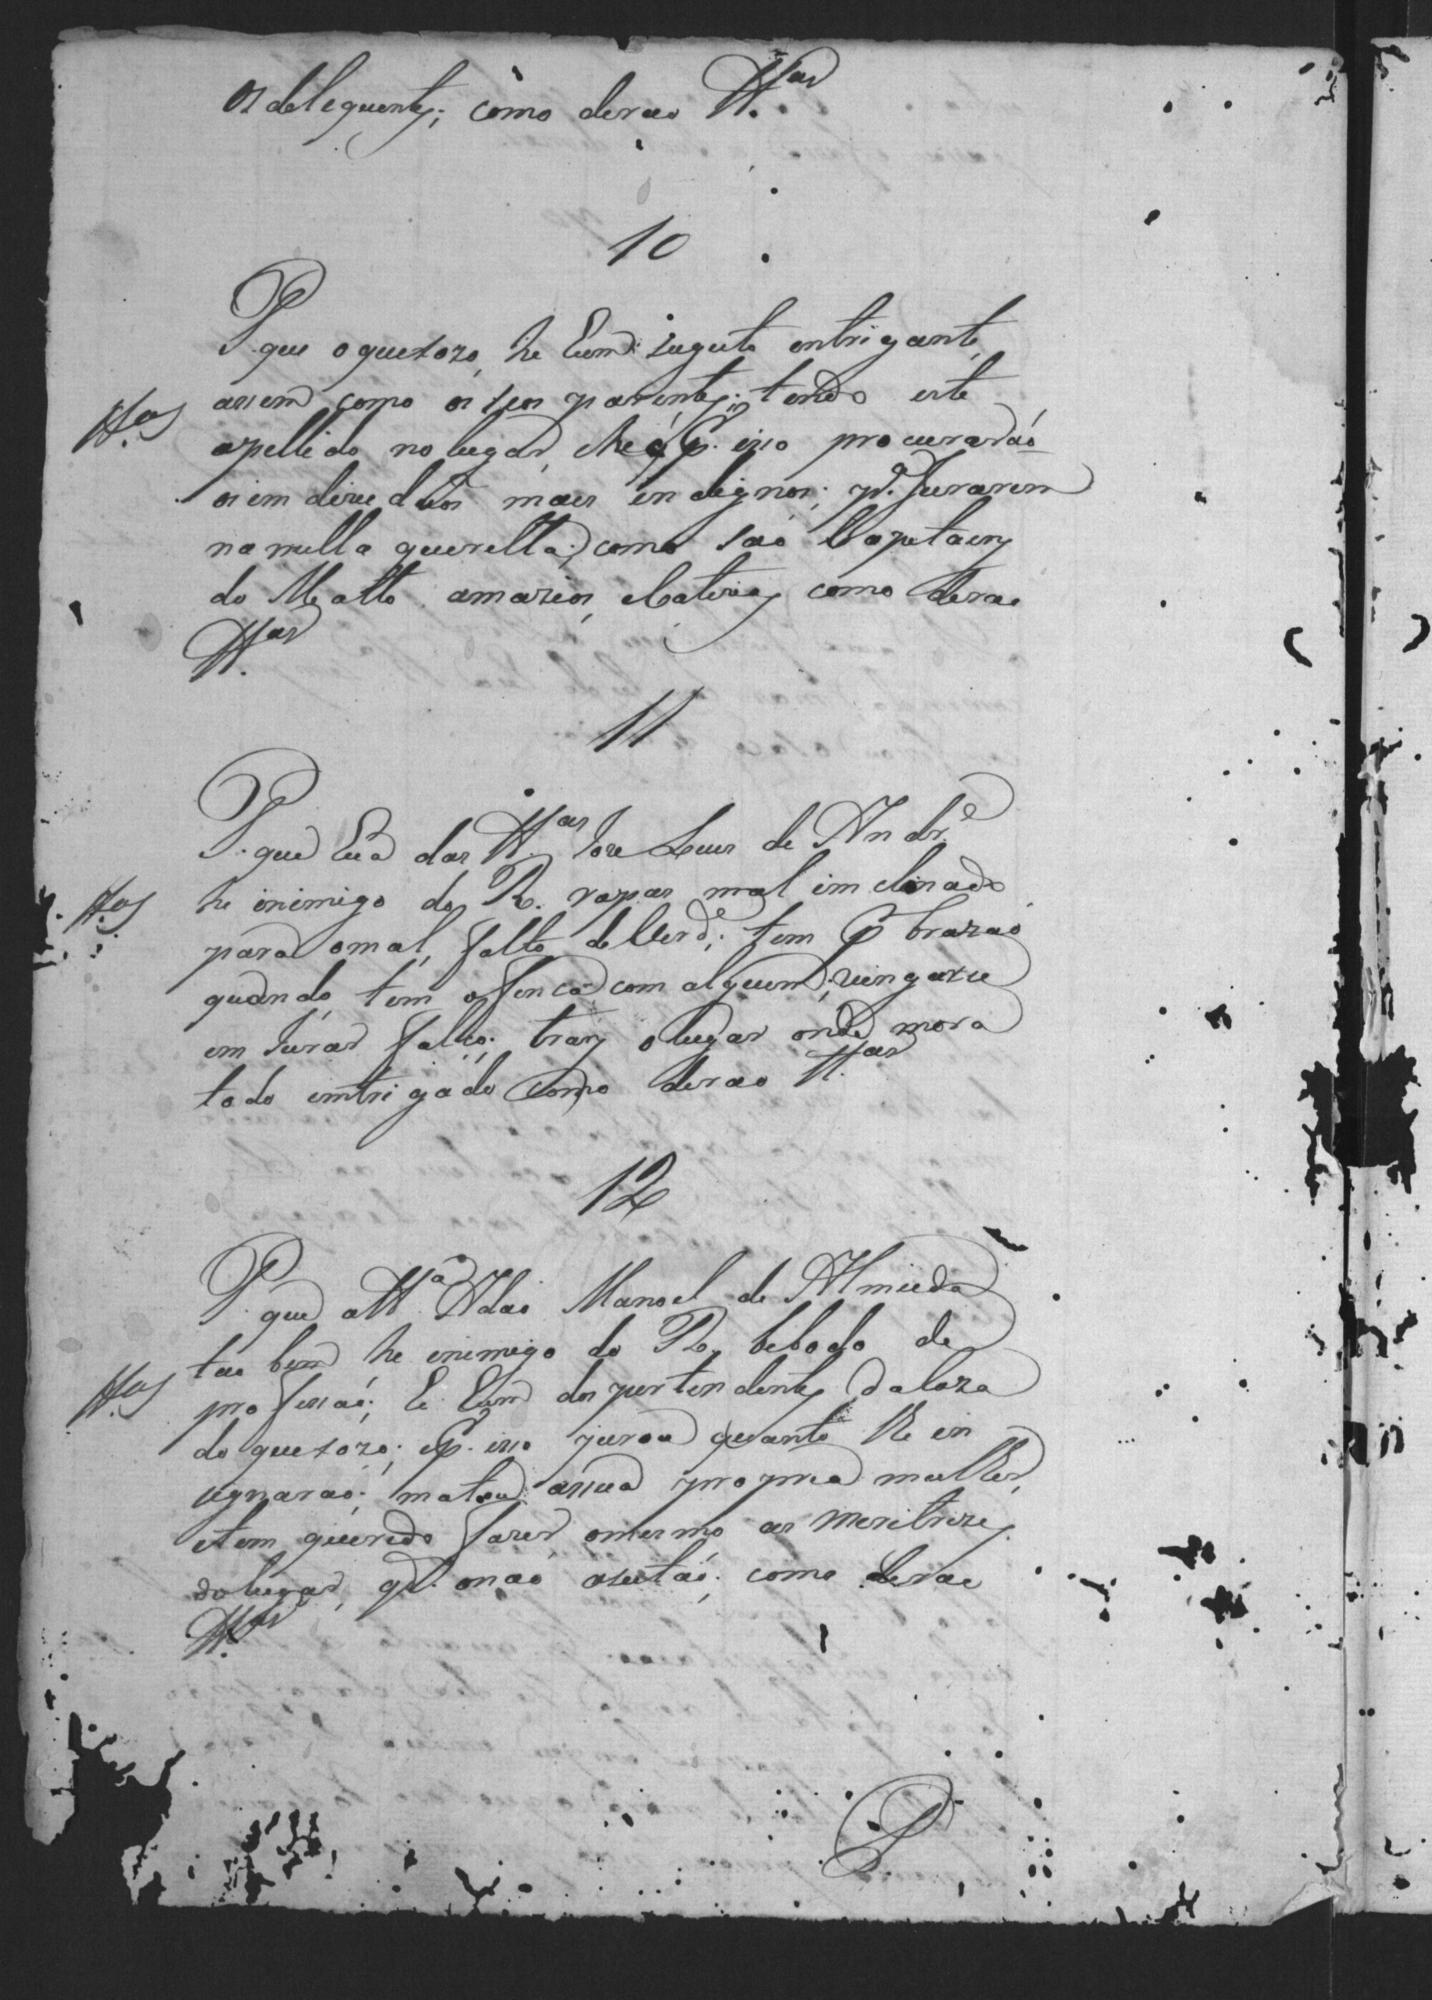 os delequentes; como dirao tt.as
10
P. que o queixozo, he hum sugeito intrigante,
assim como os seos parentes; tendo este
tt.as
apellido no lugar, e he q p. isso procurarão
os in deviduos mais indignos; p.a Jurarem
na nulla querella; como são Capitaens
do Matto amazios, e como dirao
tt.as
11
P. que hua das tt.as Joze Luis de Andr.e
tt.as
he inimigo do R. rapas mal inclinado
para o mal, falto de Verd.e; tem p. brazaó
quando tem ofença com alguem, vingarse
em Jurar falço; tras o lugar onde mora
todo intrigado como dirao tt.as
12
P. que a tt.a Adão Manoel de Almeida
tao bem he inimigo do R. bebado de
tt.as
profissaó; he hum dos pertendentes da caza
do queixozo; e p. isso jurou quanto lhe in
signarao; matou a sua propria mulher,
e tem querido fazer o mesmo as meritrizes
do lugar, q. o naó aseitaó; como dirao
tt.as
P.